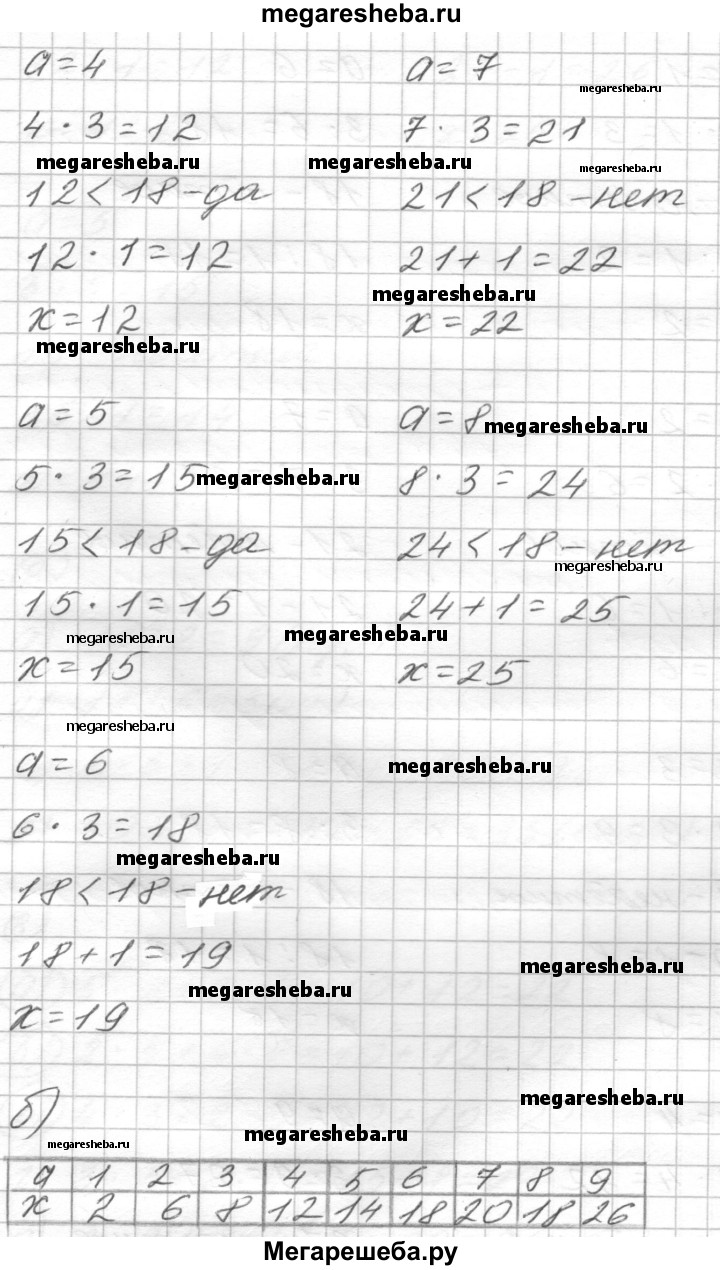 megaresheba.ru
a = 4
a = 7
megaresheba.ru
4 · 3 = 12
7 · 3 = 21
megaresheba.ru
megaresheba.ru
megaresheba.ru
12 < 18 - да
21 < 18 - нет
12 · 1 = 12
21 + 1 = 22
megaresheba.ru
x = 12
x = 22
megaresheba.ru
a = 5
a = 8
megaresheba.ru
5 · 3 = 15
megaresheba.ru
8 · 3 = 24
15 < 18 - да
24 < 18 - нет
megaresheba.ru
15 · 1 = 15
24 + 1 = 25
megaresheba.ru
megaresheba.ru
x = 15
x = 25
megaresheba.ru
a = 6
megaresheba.ru
6 · 3 = 18
megaresheba.ru
18 < 18 - нет
18 + 1 = 19
megaresheba.ru
megaresheba.ru
x = 19
megaresheba.ru
б)
megaresheba.ru
megaresheba.ru
a 1 2 3 4 5 6 7 8 9
x 2 6 8 12 14 18 20 18 26
Мегарешеба.ру